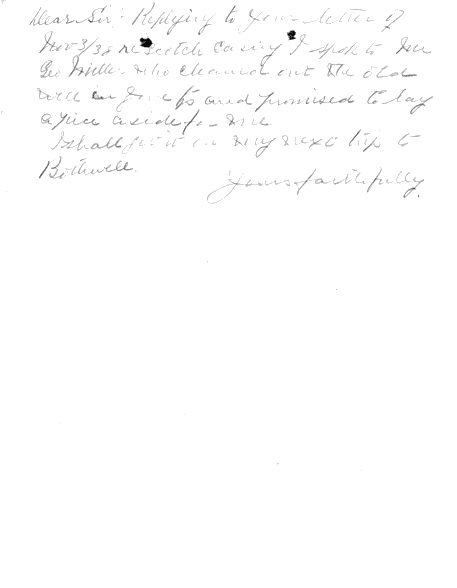 Dear Sir: Replying to your letter of
Nov 3/38 re Scotch Casing I spoke to Mr
Geo Miller who cleaned out the old
well on and promised to lay
a piece aside for me
I shall get it on my next trip to
Bothwell.
Yours faithfully,